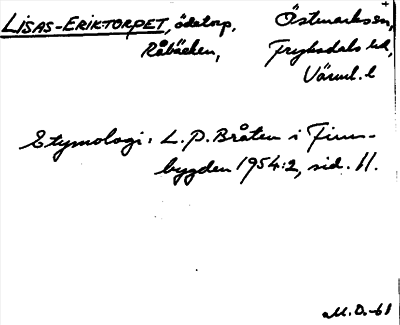 LISAS-ERIKTORPET, ödetorp, Östmarks sn,
Råbäcken, Fryksdals hd,
Värml. l
Etymologi: L. P. Bråten i Finn-
bygden 1954:2, sid. 11.
M.O.-61